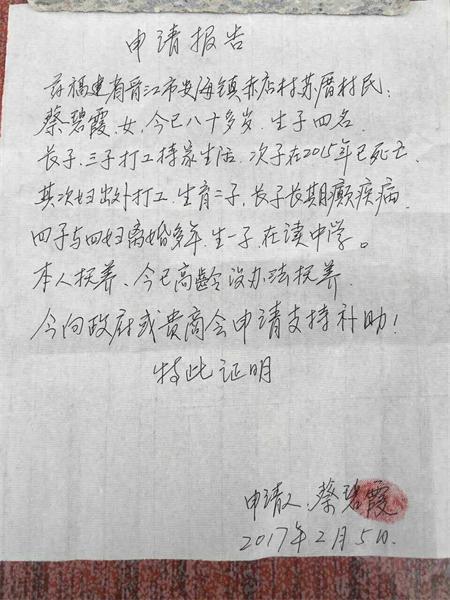 申请报告
兹福建省晋江市安海镇赤店村苏厝村民：
蔡碧霞.女.今已八十多岁.生子四名
长子.三子打工持家生活.次子在2015年已死亡.
其次妇出外打工.生育二子.长子长期癫疾病.
四子与四妇离婚多年.生一子.在读中学。
本人抚养、今已高龄没办法抚养.
今向政府或贵商会申请支持补助！
特此证明
申请人.蔡碧霞
2017年2月5日.